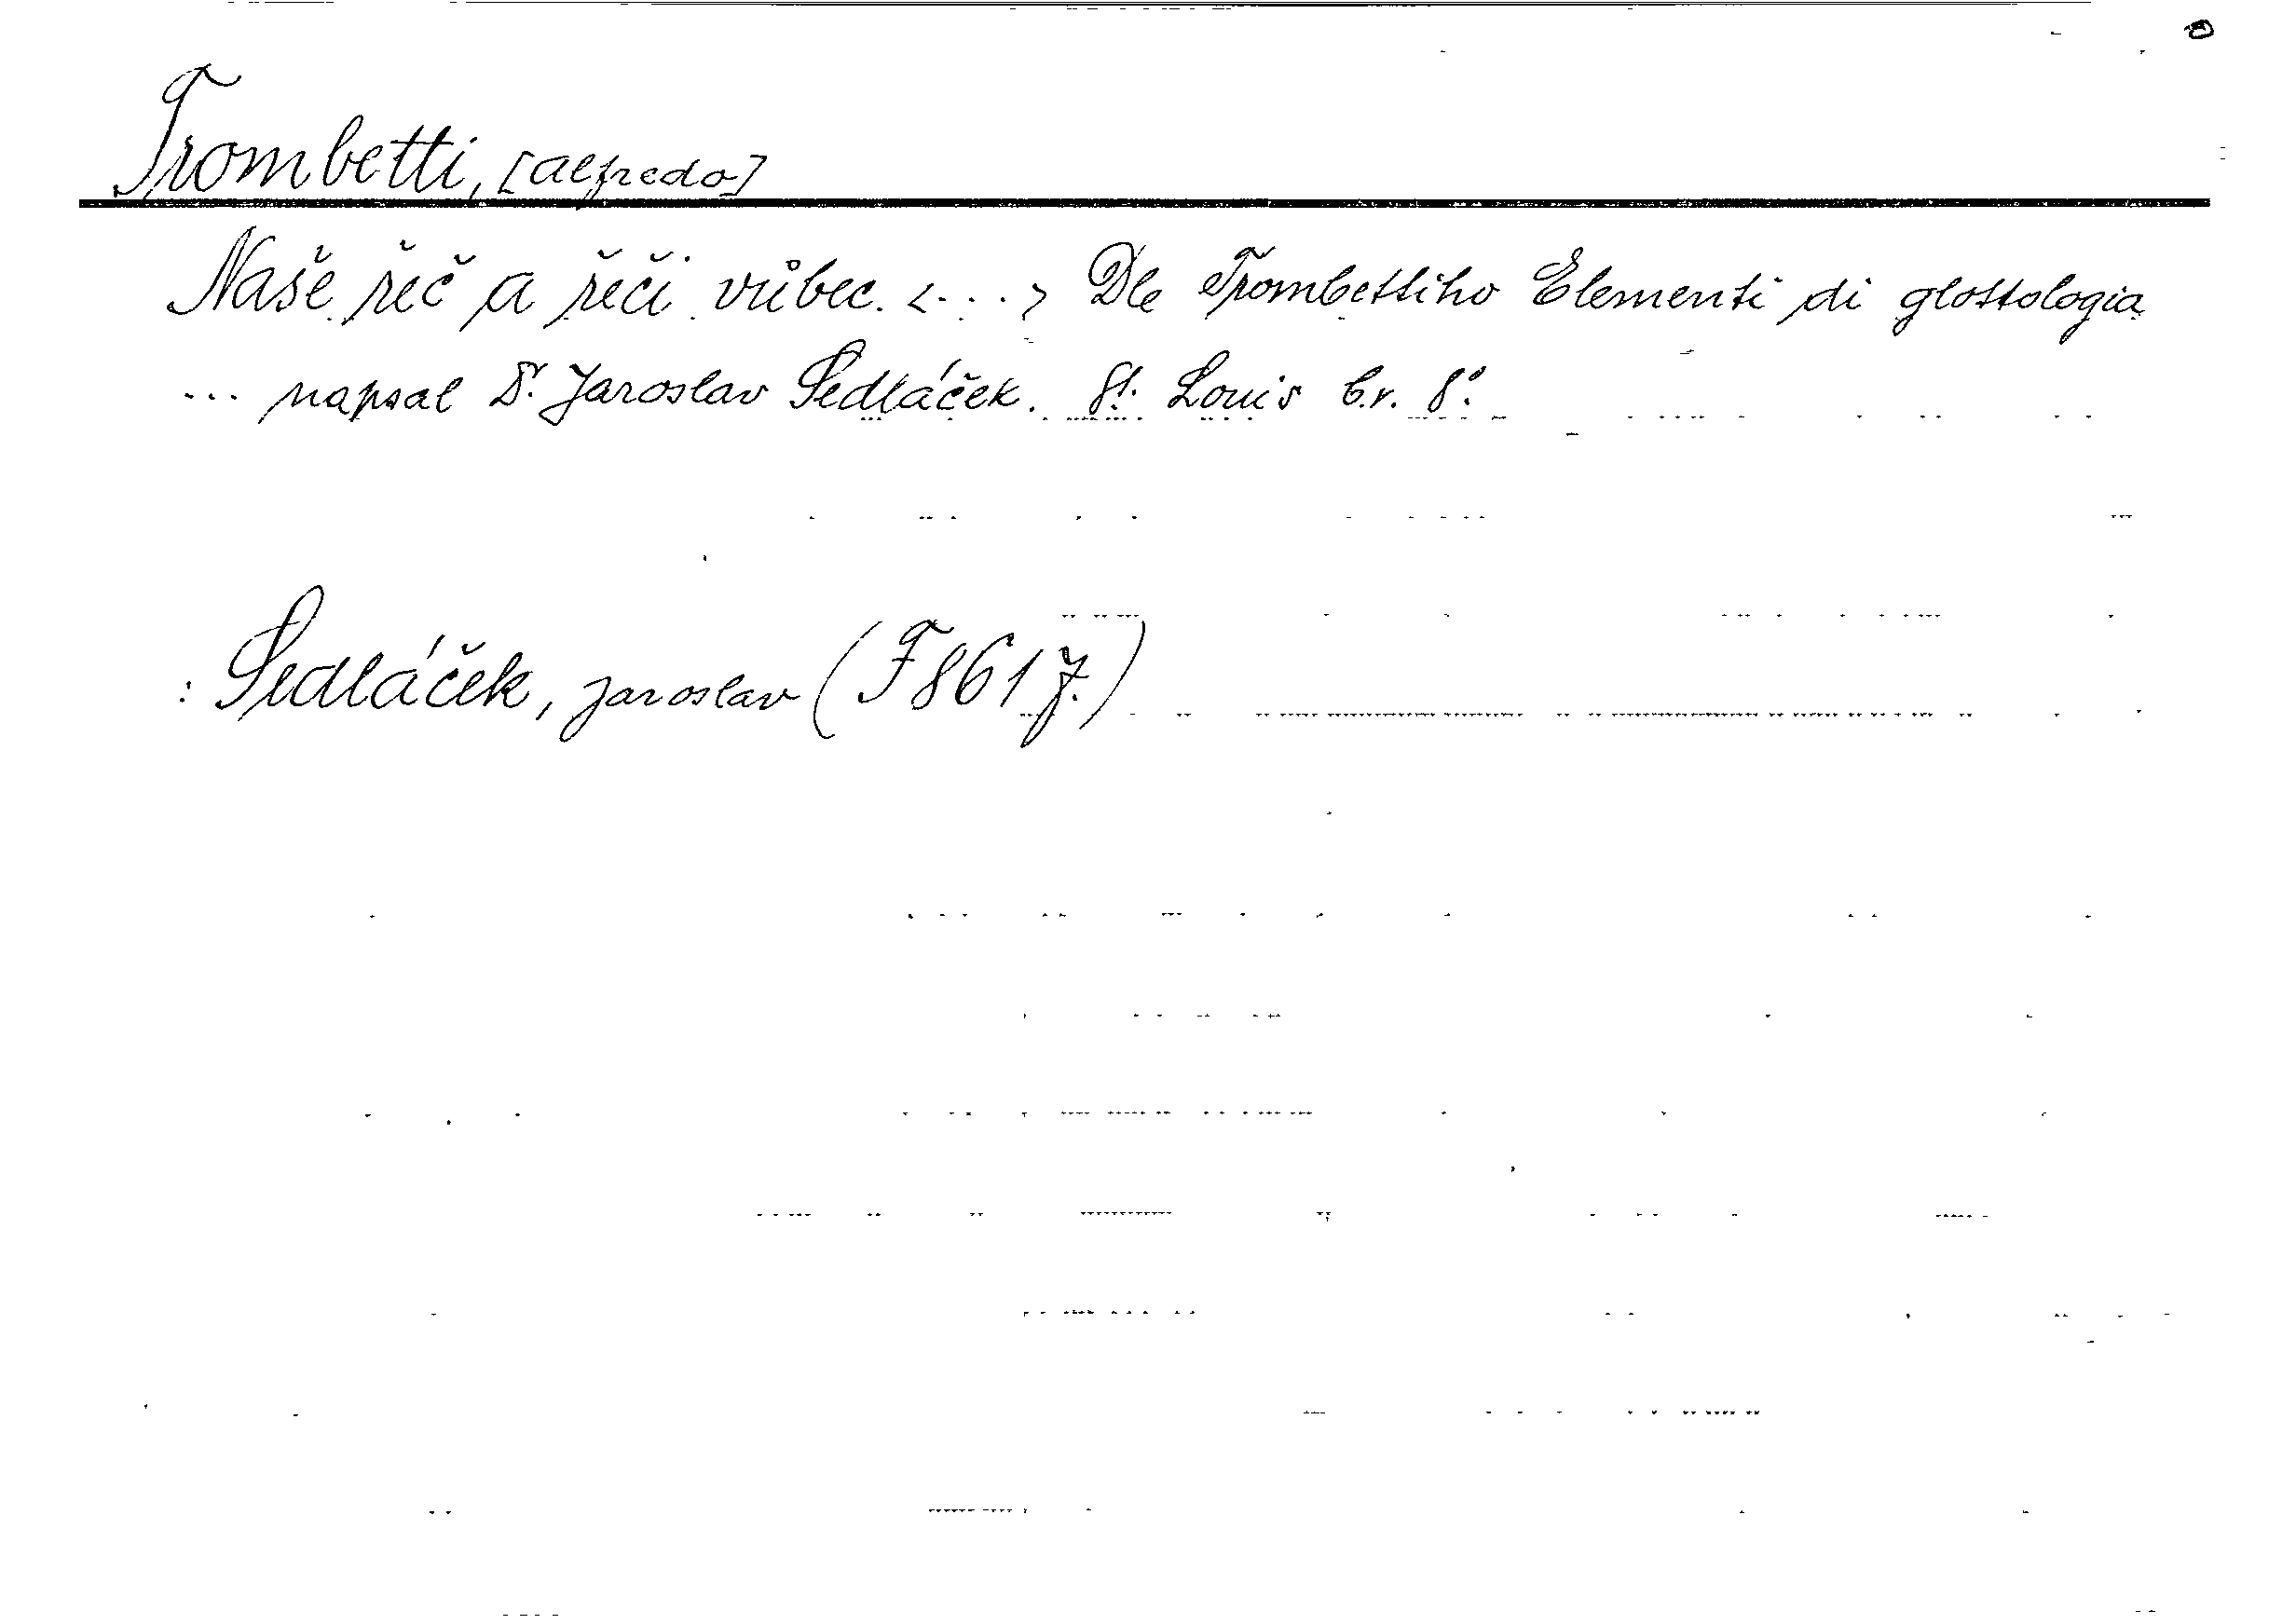 Trombetti, [Alfredo]
Naše řeč a řeči vůbec. <...> Dle Trombettiho Elementi di glottologia
... napsal Dr. Jaroslav Sedláček. St. Louis b.r. 8°.
: Sedláček, Jaroslav (F 861 J.)